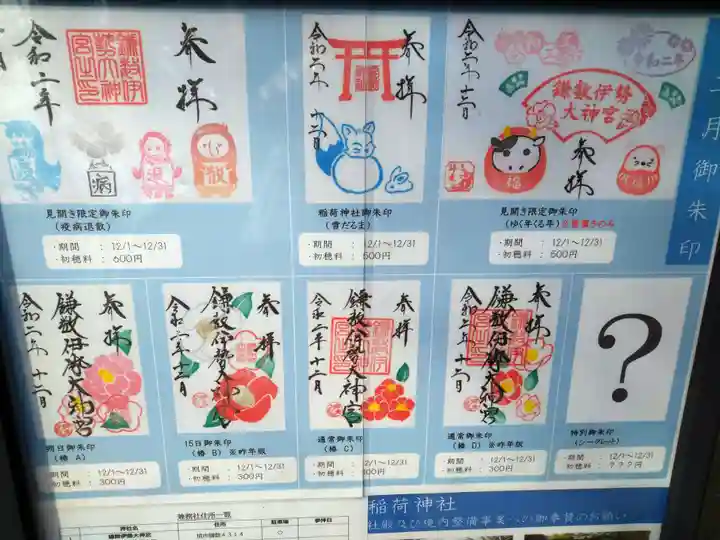 参拝
鎌数伊勢大神宮之印
令和二年
病
退
散
見開き限定御朱印
(疫病退散)
・期間 : 12/1~12/31
・初穂料 : 600円
参拝
令和二年 十二月
稲荷神社御朱印
(雪だるま)
・期間 : 12/1~12/31
・初穂料 : 500円
令和二年
鎌数伊勢
大神宮
参拝
令和二年 十二月
福
見開き限定御朱印
(ゆく年くる年)
・期間 : 12/1~12/31
・初穂料 : 500円
二月御朱印
参拝
鎌数伊勢大神宮
令和二年 十二月
朔日御朱印
(椿 A)
期間 : 12/1~12/31
初穂料 : 300円
参拝
鎌数伊勢大神宮
令和二年 十二月
15日御朱印
(椿 B) ※昨年版
・期間 : 12/1~12/31
・初穂料 : 300円
参拝
鎌数伊勢大神宮
令和二年 十二月
通常御朱印
(椿 C)
・期間 : 12/1~12/31
・初穂料 : 300円
参拝
鎌数伊勢大神宮
令和二年 十二月
通常御朱印
(椿 D) ※昨年版
・期間 : 12/1~12/31
・初穂料 : 300円
?
特別御朱印
(シークレット)
・期間 : 12/1~12/31
・初穂料 : ???
兼務社住所一覧
神社名 住所 駐車場 参拝日
鎌数伊勢大神宮 旭市鎌数4314 ○
稲荷神社
社殿及び境内整備事業への御奉賛のお願い